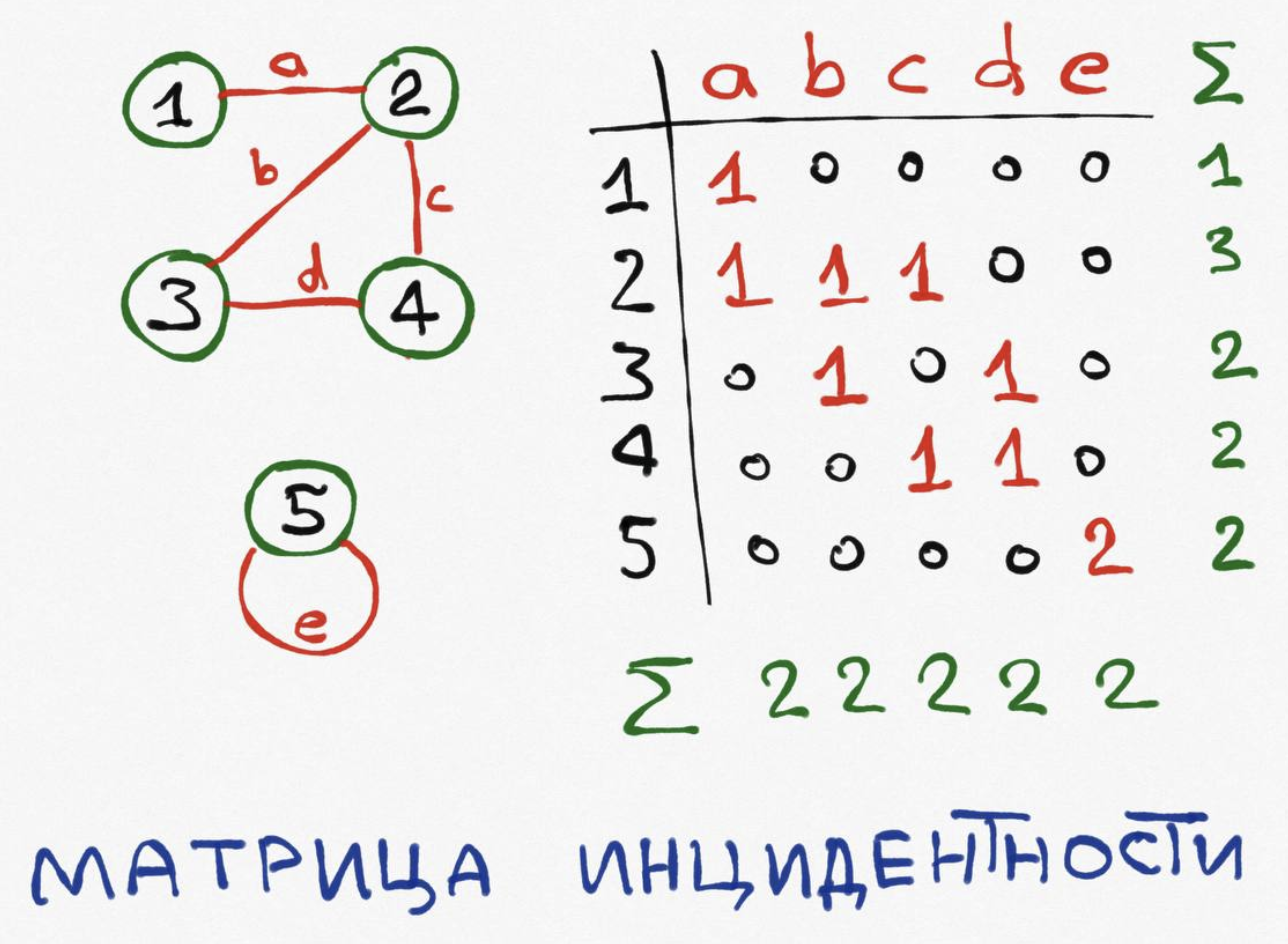 1 a 2
b c
3 d 4
5
e
a b c d e Σ
1 1 0 0 0 0 1
2 1 1 1 0 0 3
3 0 1 0 1 0 2
4 0 0 1 1 0 2
5 0 0 0 0 2 2
Σ 2 2 2 2 2
МАТРИЦА ИНЦИДЕНТНОСТИ